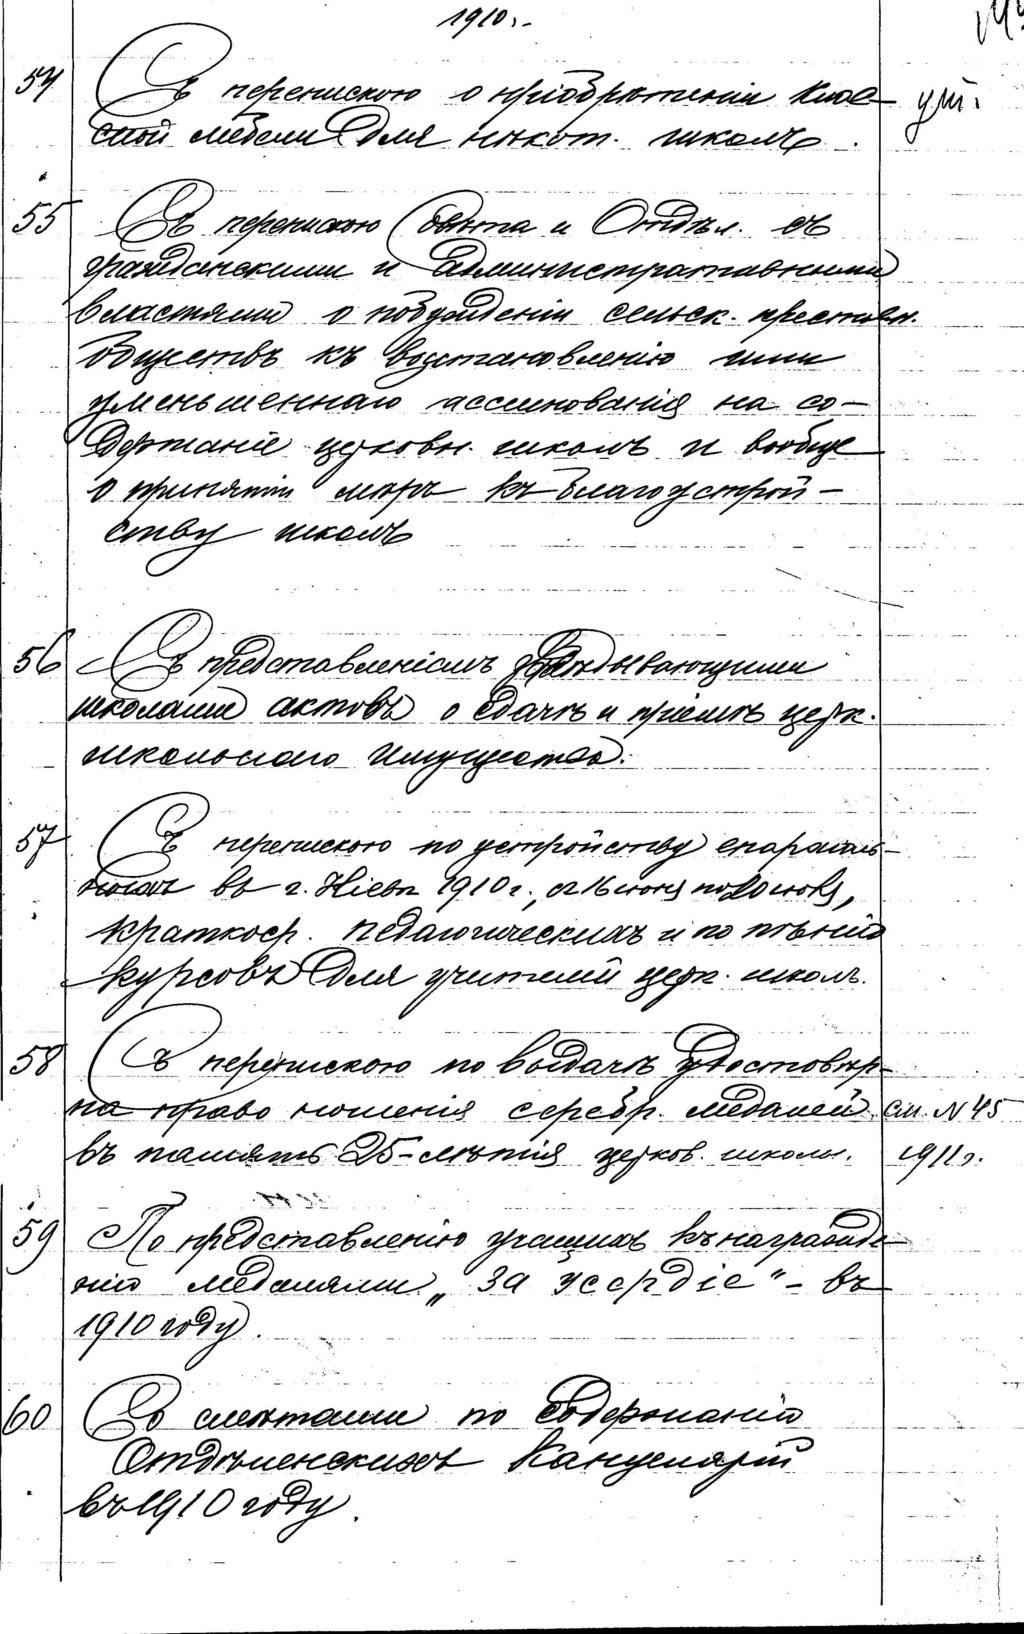 1910г.
54 Съ перепискою о приобрѣтеніи клас-
сной мебели для нѣкот. школъ.
55 Съ перепискою Совѣта и Отдѣл. съ
гражданскими и административными
властями о побужденіи сельск. крестьян.
обществъ къ возстановленію или
уменьшеннаго ассигнованія на со-
держаніе церковн. школъ и вообще
о принятіи мѣръ къ благоустрой-
ству школъ
56 Съ представленіемъ завѣдывающими
школами актовъ о сдачѣ и пріемѣ церк.
школьнаго имущества.
57 Съ перепискою по устройству епархіаль-
ныхъ въ г. Кіевѣ 1910 г., съ 16 іюня по 20 іюля,
краткоср. педагогическихъ и по пѣнію
курсовъ для учителей церк. школъ.
58 Съ перепискою по выдачѣ удостовѣр.
на право ношенія серебр. медалей см. N 45
въ память 25-лѣтія церков. школы. 1911г.
59 По представленію учащихъ къ награжде-
нію медалями „За усердіе" - въ
1910 году.
60 Со смѣтами по содержанію
Отдѣленскихъ Канцелярій
въ 1910 году.